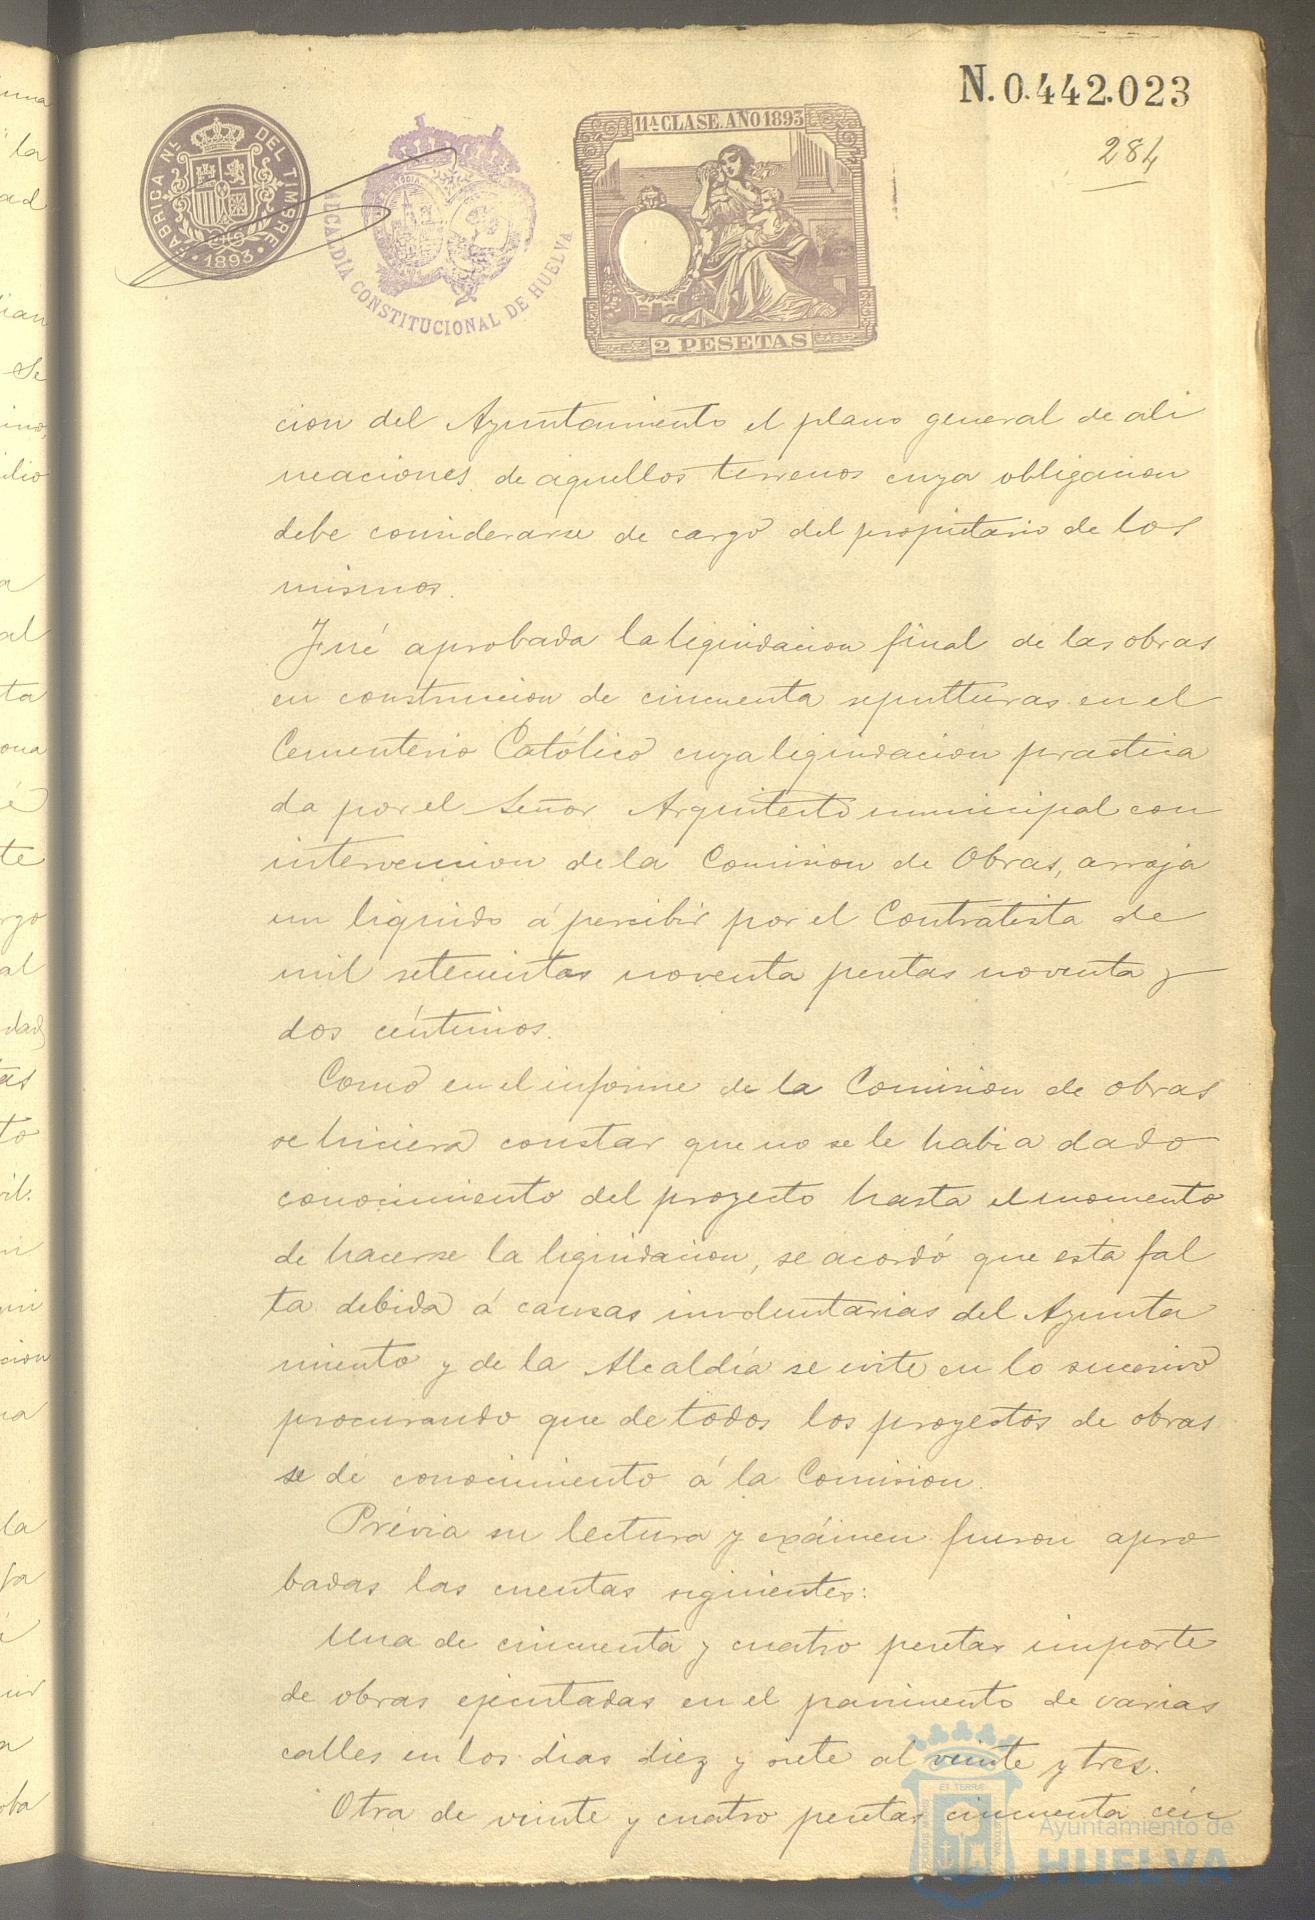 N. 0.442.023
284
FABRICA NL. DEL TIMBRE
1893
ALCALDÍA CONSTITUCIONAL DE HUELVA
11ª CLASE. AÑO 1893
2 PESETAS
cion del Ayuntamiento el plano general de ali
neaciones de aquellos terrenos cuya obligacion
debe considerarse de cargo del propietario de los
mismos.
Fué aprobada la liquidacion final de las obras
en construccion de cincuenta sepulturas en el
Cementerio Católico cuya liquidacion practica
da por el Señor Arquitecto municipal con
intervencion de la Comision de Obras, arroja
un liquido á percibir por el Contratista de
mil setecientas noventa pesetas noventa y
dos céntimos.
Como en el informe de la Comision de obras
se hiciera constar que no se le habia dado
conocimiento del proyecto hasta el momento
de hacerse la liquidacion, se acordó que esta fal
ta debida á causas involuntarias del Ayunta
miento y de la Alcaldía se evite en lo sucesivo
procurando que de todos los proyectos de obras
se dé conocimiento á la Comision.
Prévia su lectura y exámen fueron apro
badas las cuentas siguientes:
Una de cincuenta y cuatro pesetas importe
de obras ejecutadas en el pavimento de varias
calles en los dias diez y siete al veinte y tres.
Otra de veinte y cuatro pesetas cincuenta cén
Ayuntamiento de
HUELVA